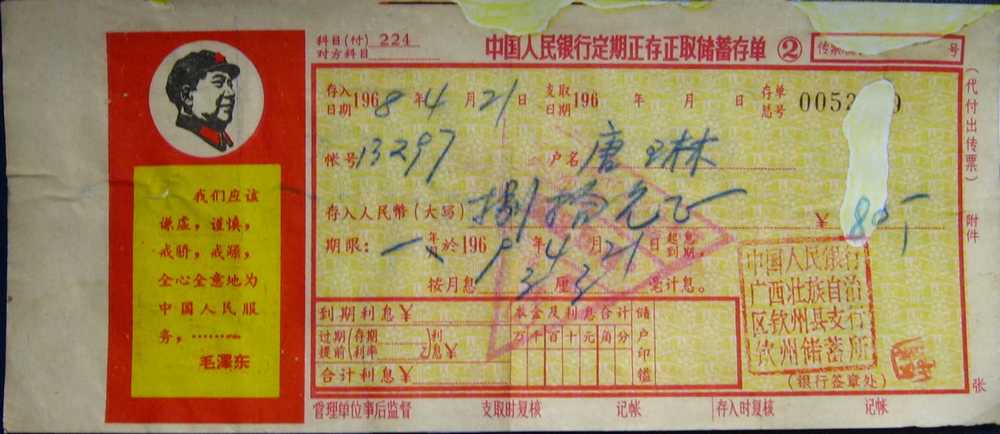 科目(付) 224
对方科目
中国人民银行定期正存正取储蓄存单 ②
号
存入日期 1968年4月21日 支取日期 196 年 月 日 存单总号
帐号 13297 户名 唐 林
存入人民币(大写) 捌拾元正 ¥ 80
期限: 一年 於 1969年4月21日起息到期,
按月息 3 厘 3 毫计息。
到期利息¥ 本金及利息合计 储户印鉴
过期(存期)利
提前(利率) 息¥ 万千百十元角分
合计利息¥
中国人民银行
广西壮族自治
区钦州县支行
钦州储蓄所
(银行签章处)
管理单位事后监督 支取时复核 记帐 存入时复核 记帐
(代付出传票)
附件
张
我们应该
谦虚,谨慎,
戒骄,戒躁,
全心全意地为
中国人民服
务,………
毛澤东